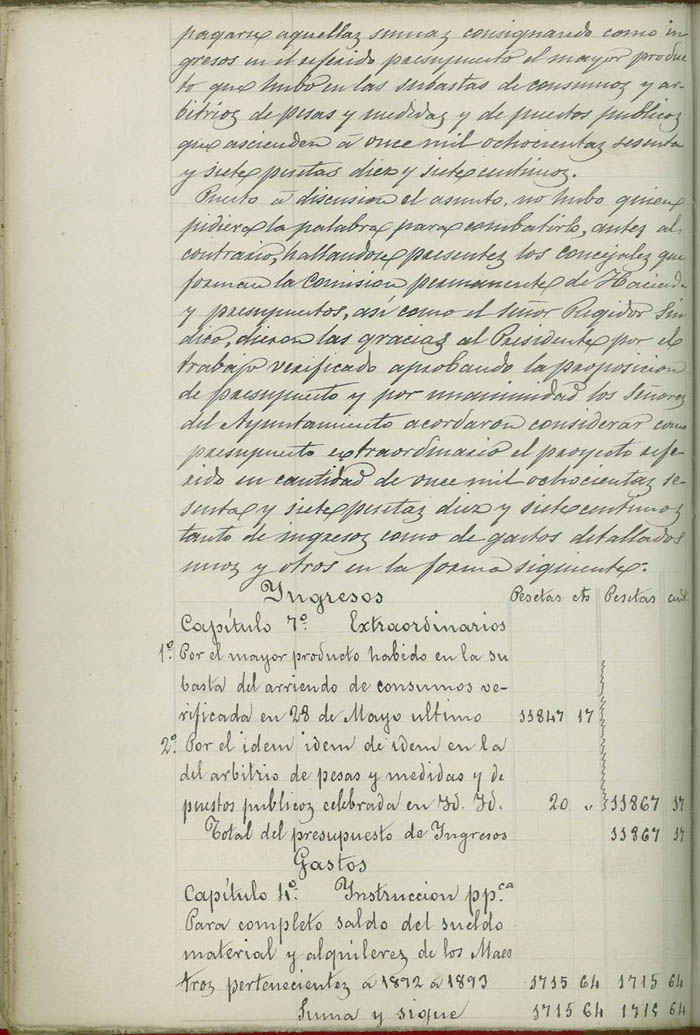 pagarse aquellas sumas consignando como in
gresos en el referido presupuesto el mayor produc
to que hubo en las subastas de consumos y ar-
bitrios de pesas y medidas y de puestos publicos
que ascienden á once mil ochocientas sesenta
y siete pesetas diez y siete centimos.
Puesto á discusion el asunto, no hubo quien
pidiera la palabra para combatirlo, antes al
contrario, hallandose presentes los concejales que
forman la Comision permanente de Hacienda
y presupuestos, así como el Señor Regidor Sin
dico, dieron las gracias al Presidente por el
trabajo verificado aprobando la proposicion
de presupuesto y por unanimidad los Señores
del Ayuntamiento acordaron considerar como
presupuesto extraordinario el proyecto refe-
rido en cantidad de once mil ochocientas se-
senta y siete pesetas diez y siete centimos
tanto de ingresos como de gastos detallados
unos y otros en la forma siguiente:
Ingresos Pesetas cts Pesetas cent
Capítulo 7º Extraordinarios
1º Por el mayor producto habido en la su
basta del arriendo de consumos ve-
rificada en 28 de Mayo ultimo 11847 17
2º Por el idem idem de idem en la
del arbitrio de pesas y medidas y de
puestos publicos celebrada en Id. Id. 20 " 11867 17
Total del presupuesto de Ingresos 11867 17
Gastos
Capítulo 4º Instruccion pp.ca
Para completo saldo del sueldo
material y alquileres de los Maes
tros pertenecientes á 1892 á 1893 1715 64 1715 64
Suma y sigue 1715 64 1715 64